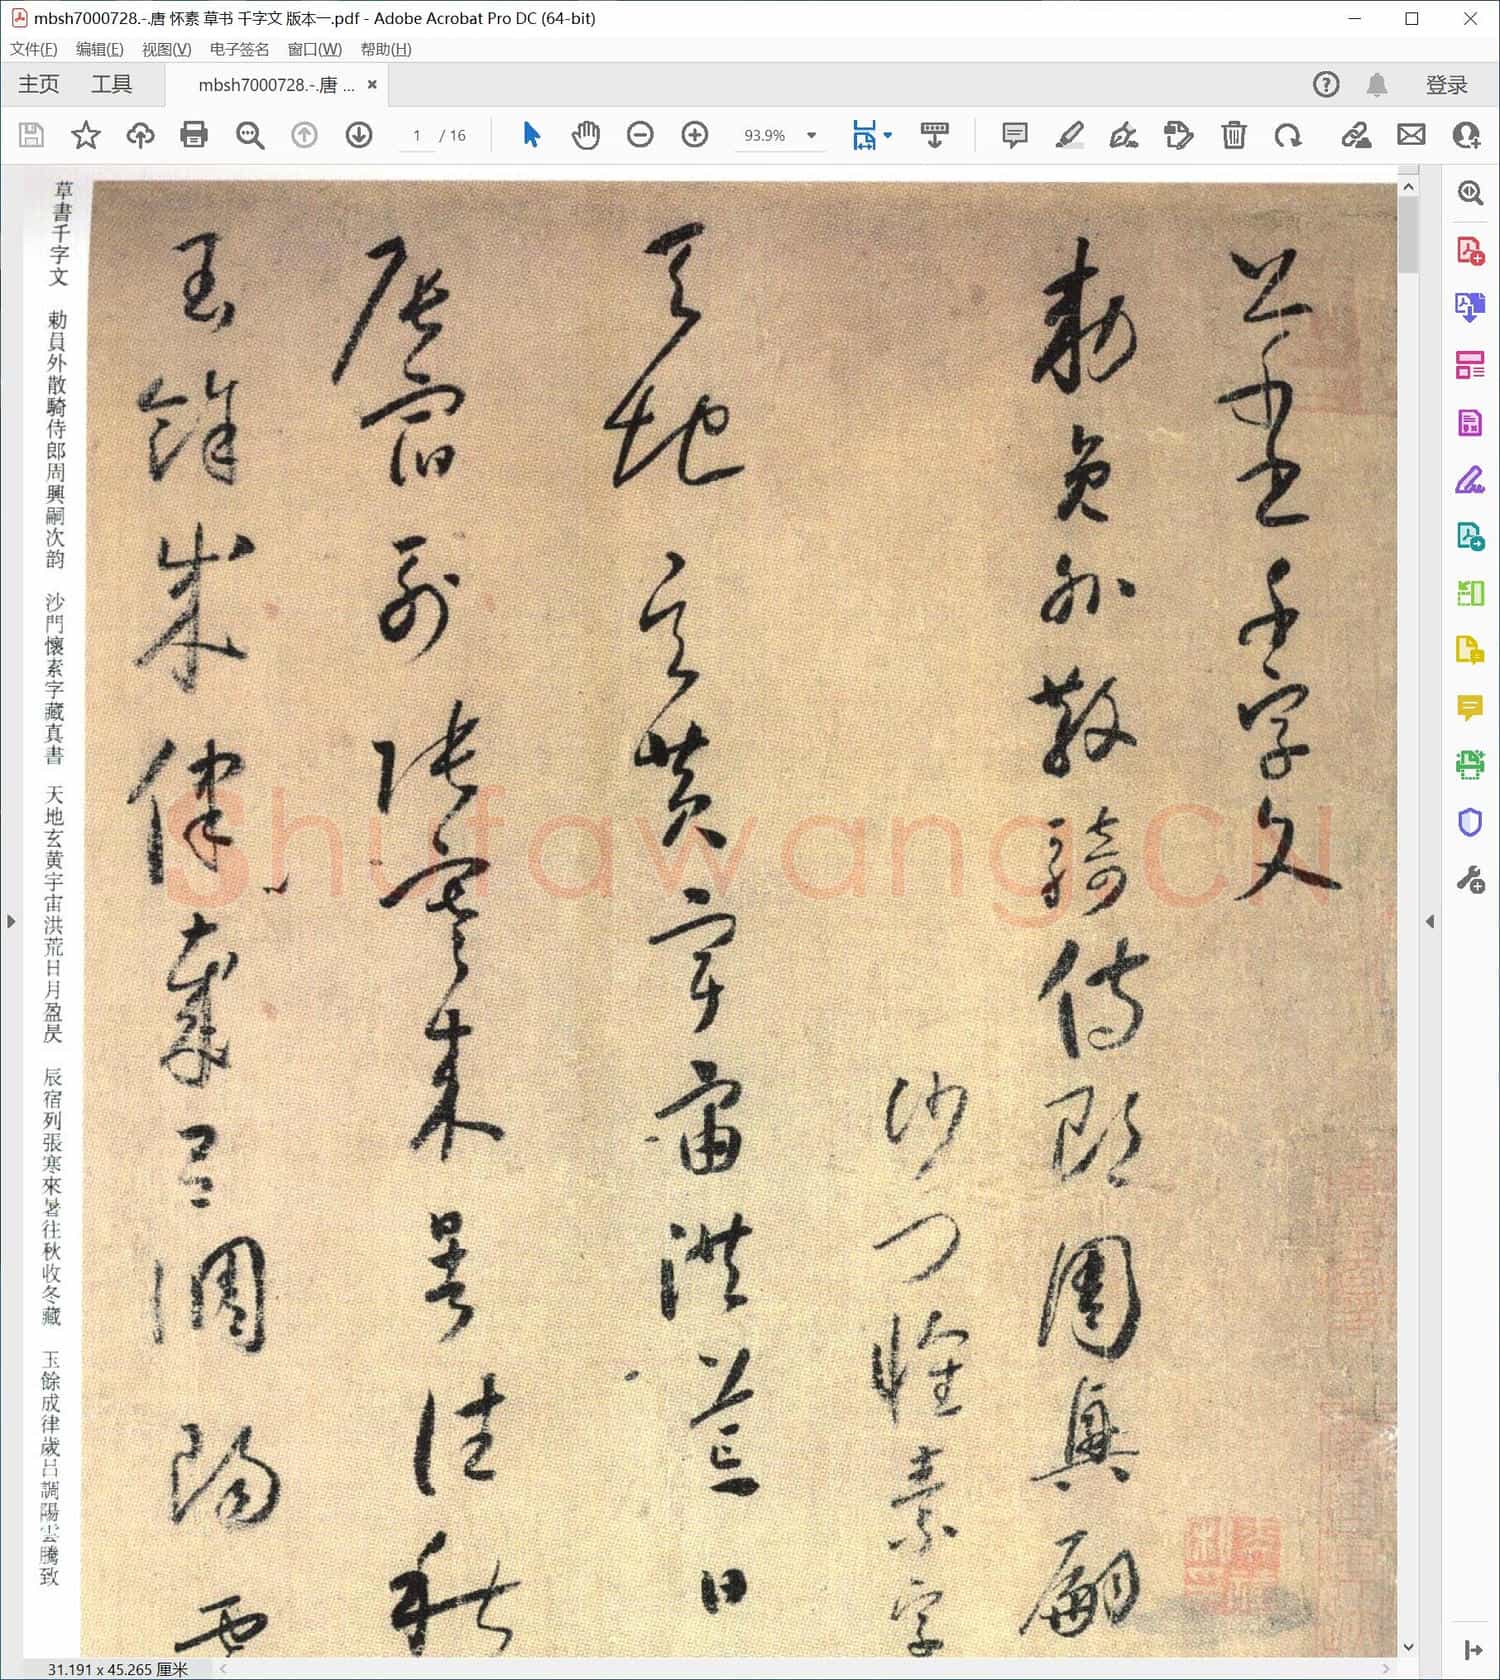 mbsh7000728.-.唐 怀素 草书 千字文 版本一.pdf - Adobe Acrobat Pro DC (64-bit)
文件(F) 编辑(E) 视图(V) 电子签名 窗口(W) 帮助(H)
主页 工具 mbsh7000728.-.唐 ... 登录
1 / 16 93.9%
草書千字文
勅員外散騎侍郎周興嗣
沙門懷素字
天地玄黃宇宙洪荒日
辰宿列張寒來暑往秋
玉餘成律歲呂調陽雲
草書千字文 勅員外散騎侍郎周興嗣次韵 沙門懷素字藏真書 天地玄黄宇宙洪荒日月盈昃 辰宿列張寒來暑往秋收冬藏 玉餘成律歲呂調陽雲騰致
Shufawang.CN
31.191 x 45.265 厘米